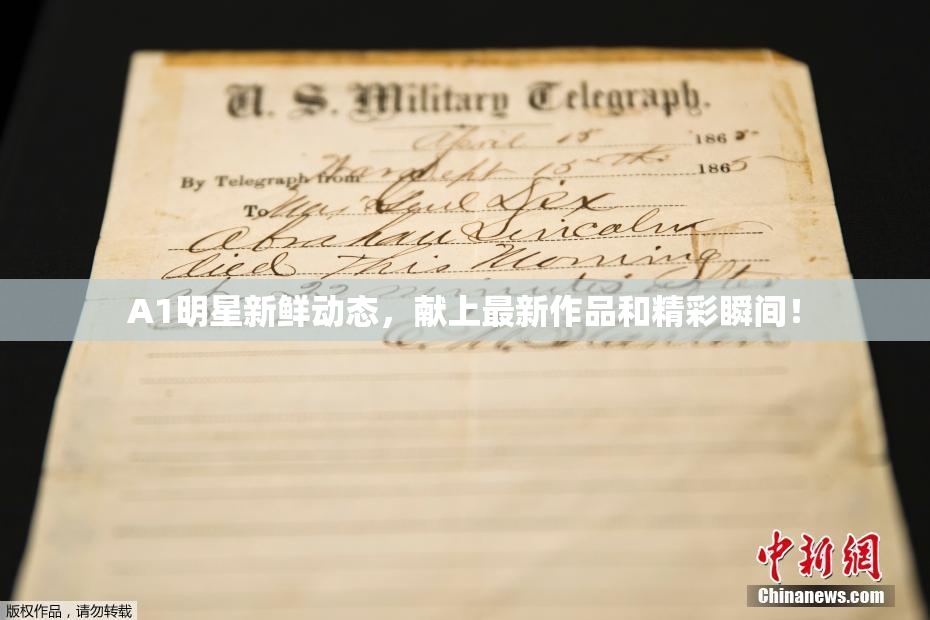 U. S. Military Telegraph.
April 15 1865
By Telegraph from War Dept 15th 1865
To Maj Genl Dix
Abraham Lincoln
died This Morning
at 22 minutes after
A1明星新鲜动态，献上最新作品和精彩瞬间！
E. M. Stanton
中新网
Chinanews.com
版权作品，请勿转载